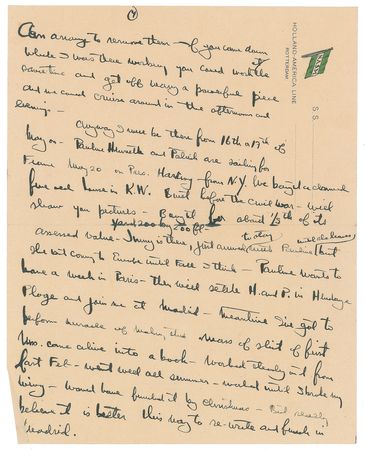 (4)
HOLLAND-AMERICA LINE
ROTTERDAM
S.S.
NASM
Am arranging to remove them — If you came down
while I was there working you could work the
same time and get off many a powerful piece
and we could cruise around in the afternoons and
evenings —
Anyway I must be there from 16th or 17th of
May on — Pauline Henrietta and Patrick are sailing for
France May 20 on Pres. Harding — from N.Y. We bought a
fine old house in K.W. Built before the civil war — will
show you pictures — Bought for about 1/5th of its
yard 200 by 200 ft —
assessed value — Jinny is there, just arrived, to stay with Pauline
She will come to Europe until Fall I think — Pauline wants to
have a week in Paris — then will settle H. and P. in Hendaye
Plage and join me at Madrid — Meantime I've got to
perform miracle of making this mass of shit of first
Mss. come alive into a book — worked steadily on it from
last Feb — went well all summer — worked until I broke my
wing — Would have finished it by christmas — But
believe it is better this way to re-write and finish in
Madrid.